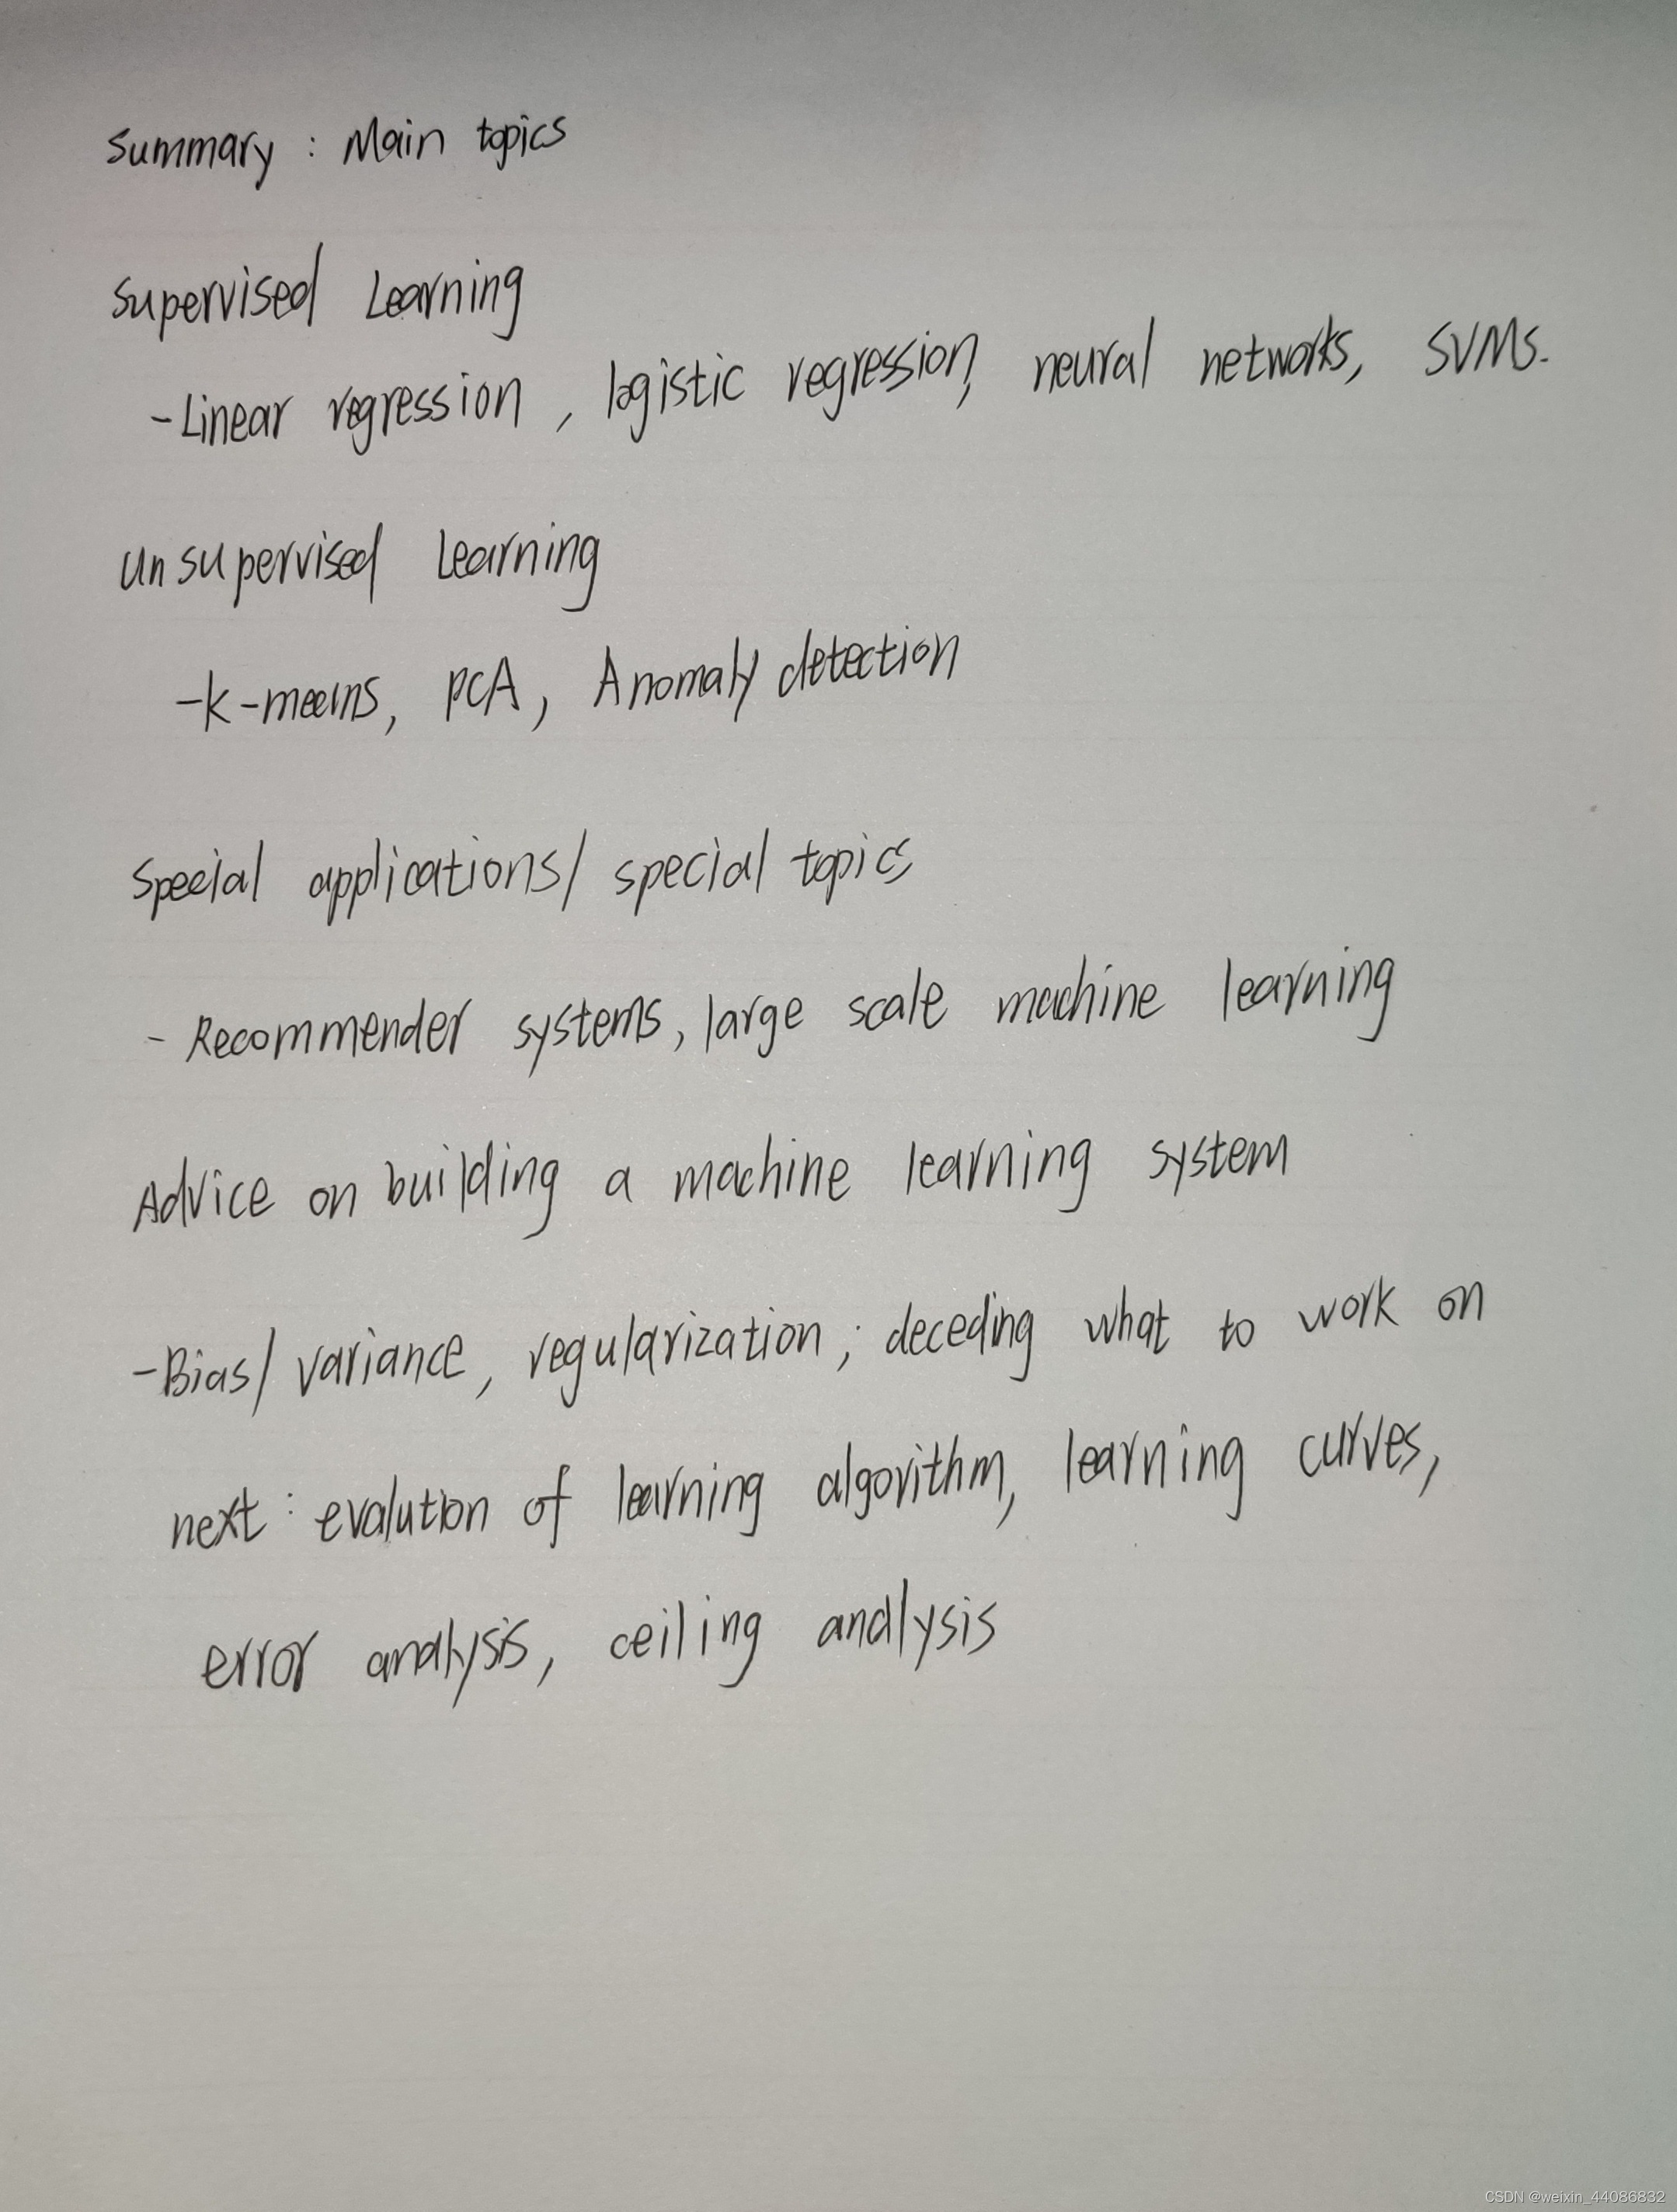 Summary : Main topics
Supervised Learning
-Linear regression , logistic regression, neural networks, SVMs.
unsupervised Learning
-k-means, PCA, Anomaly detection
Special applications/ special topics
- Recommender systems, large scale machine learning
Advice on building a machine learning system
-Bias/ variance, regularization; deceding what to work on
next : evalution of learning algorithm, learning curves,
error analysis, ceiling analysis
CSDN @weixin_44086832